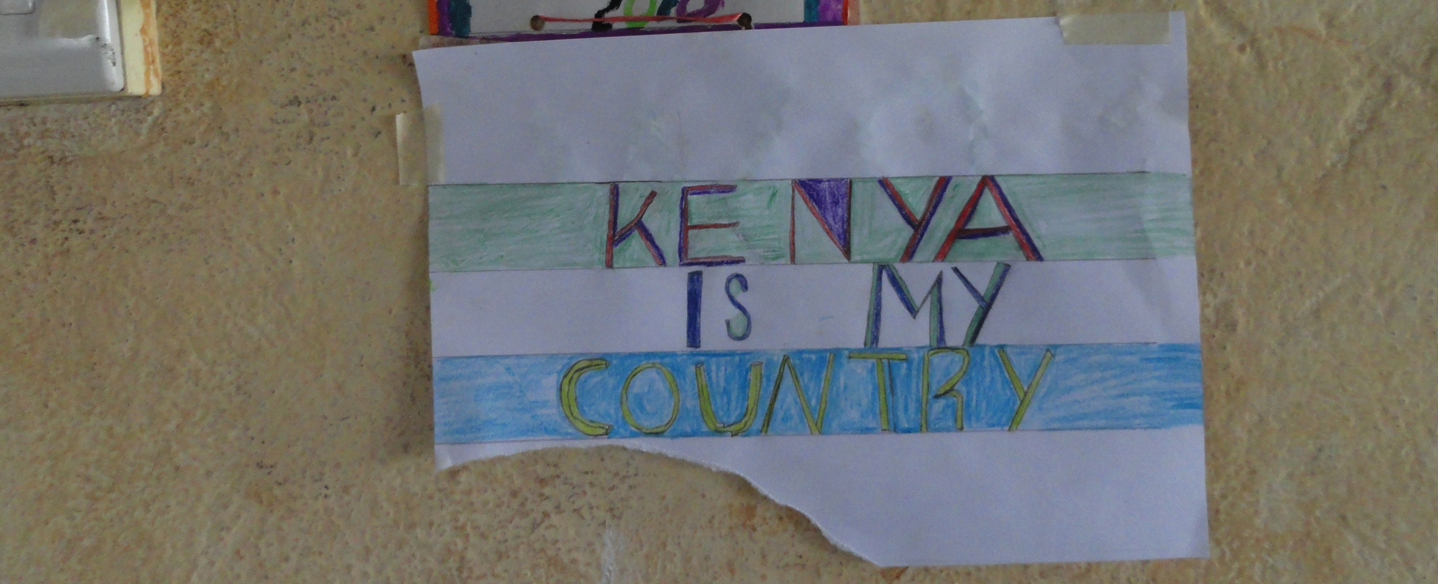 KENYA
IS MY
COUNTRY